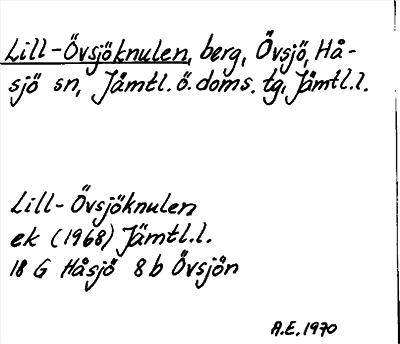 Lill-Övsjöknulen, berg, Övsjö, Hå-
sjö sn, Jämtl. ö. doms. tg, Jämtl.l.
Lill-Övsjöknulen
ek (1968) Jämtl.l.
18 G Håsjö 8 b Övsjön
A.E. 1970